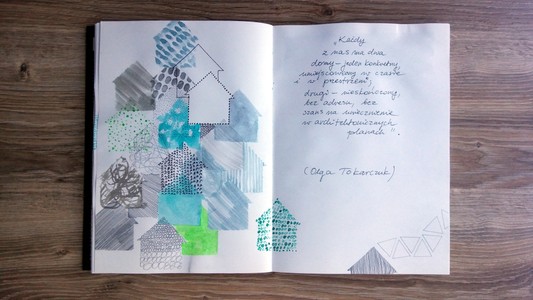 „Każdy
z nas ma dwa
domy – jeden konkretny,
umiejscowiony w czasie
i w przestrzeni;
drugi – nieskończony,
bez adresu, bez
szans na uwiecznienie
w architektonicznych
planach".
(Olga Tokarczuk)